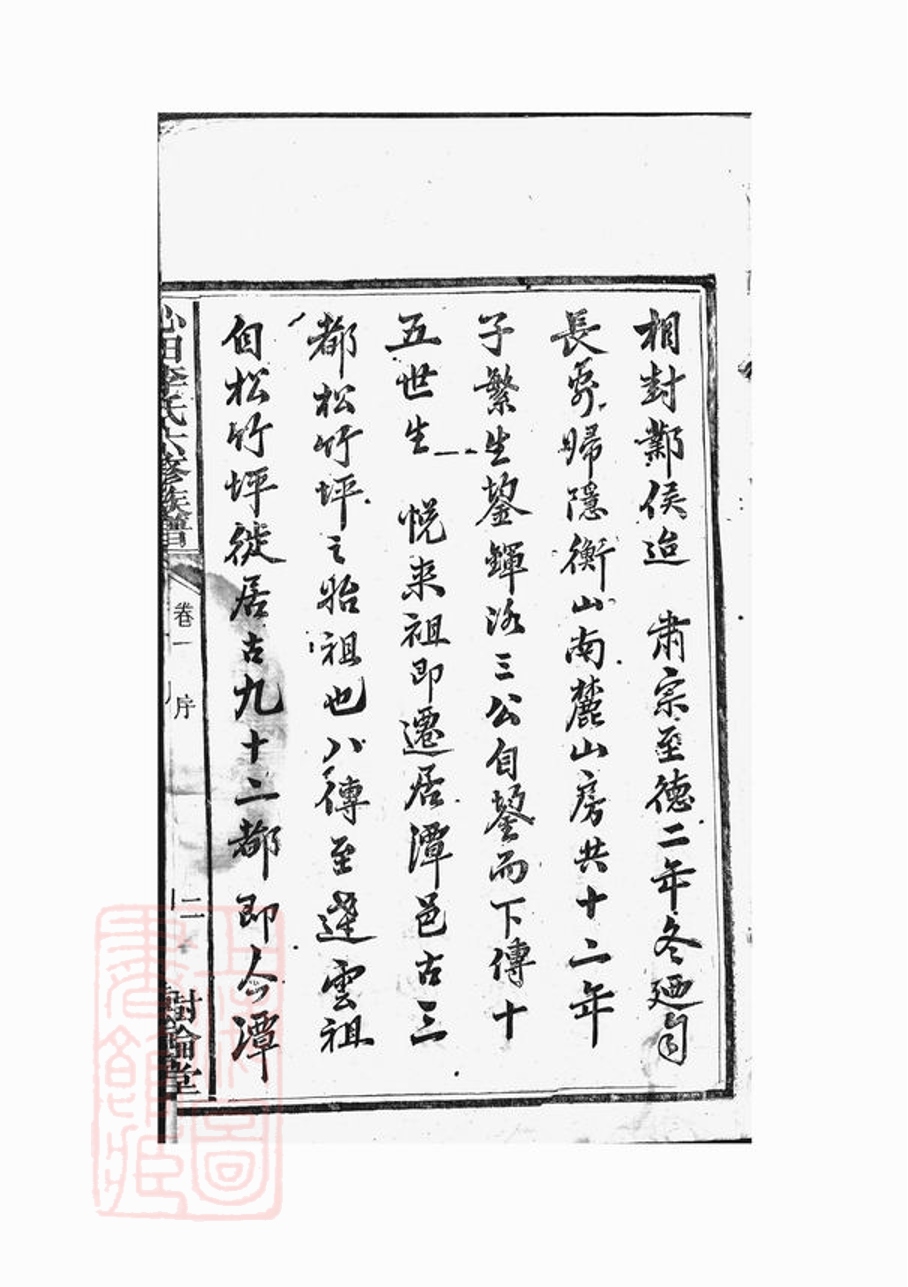 相封鄴侯迨 肅宗至德二年冬廼自
長安歸隱衡山南麓山房共十二年
子繁生鋆鎽泳三公自鋆而下傳十
五世生 悅来祖即遷居潭邑古三
都松竹坪之始祖也八傳至達雲祖
自松竹坪徙居古九十二都即今潭
心田李氏六修族譜
卷一
序
二
樹倫堂